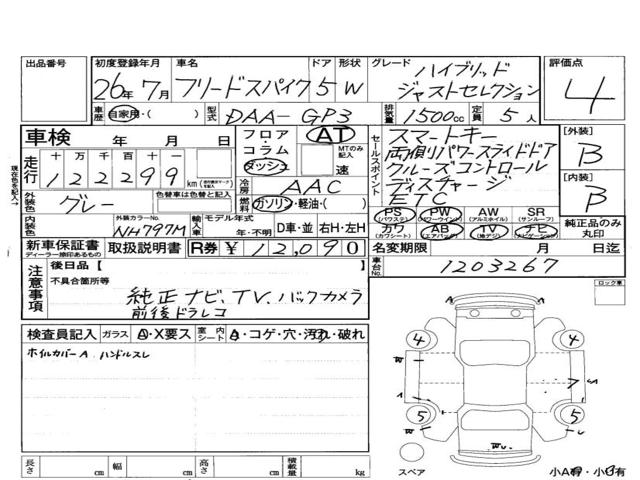 出品番号 初度登録年月 車名 ドア 形状 グレード 評価点
26年 7月 フリードスパイク 5 W ハイブリッド ジャストセレクション 4
車歴 自家用・( ) 型式 DAA-GP3 排気量 1500cc 定員 5人
車検 年 月 日 フロア コラム ダッシュ AT MTのみ記入 速
セールスポイント スマートキー
両側リパワースライドドア
クルーズコントロール
ディスチャージ
ETC
[外装] B
[内装] B
走行 十 万 千 百 十 一
1 2 2 2 9 9 km
冷房 AAC
外装色 グレー 色替車は色替と記入 燃料 ガソリン・軽油・( )
PS (パワステ) PW (パワーウインド) AW (アルミホイル) SR (サンルーフ)
カワ (カワシート) AB (エアバッグ) TV (純デジ) ナビ (ナビゲーション)
純正品のみ丸印
内装色 外装カラーNo. NH797M 輸入車 モデル年式 年・不明 D車・並 右H・左H
新車保証書 ディーラー捺印あるもの 取扱説明書 R券 ¥ 12,090 名変期限 月 日迄
車台No. 1203267
現在色を記入→
注意事項 後日品【
不具合箇所等
純正ナビ、TV、バックカメラ
前後ドラレコ
ロック車
検査員記入 ガラス A・X要ス 室内シート A・コゲ・穴・汚れ・破れ
ホイルカバーA ハンドルスレ
4 4
7
5 5
スペア 小A有・小B有
長さ cm 幅 cm 高さ cm 積載量 kg